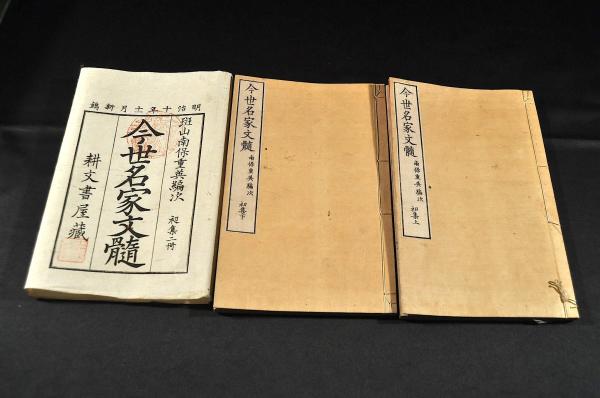 明治十年十一月新鐫
班山南保重英編次 初集二冊
今世名家文髓
耕文書屋藏
今世名家文髓 南保重英編次 初集下
今世名家文髓 南保重英編次 初集上